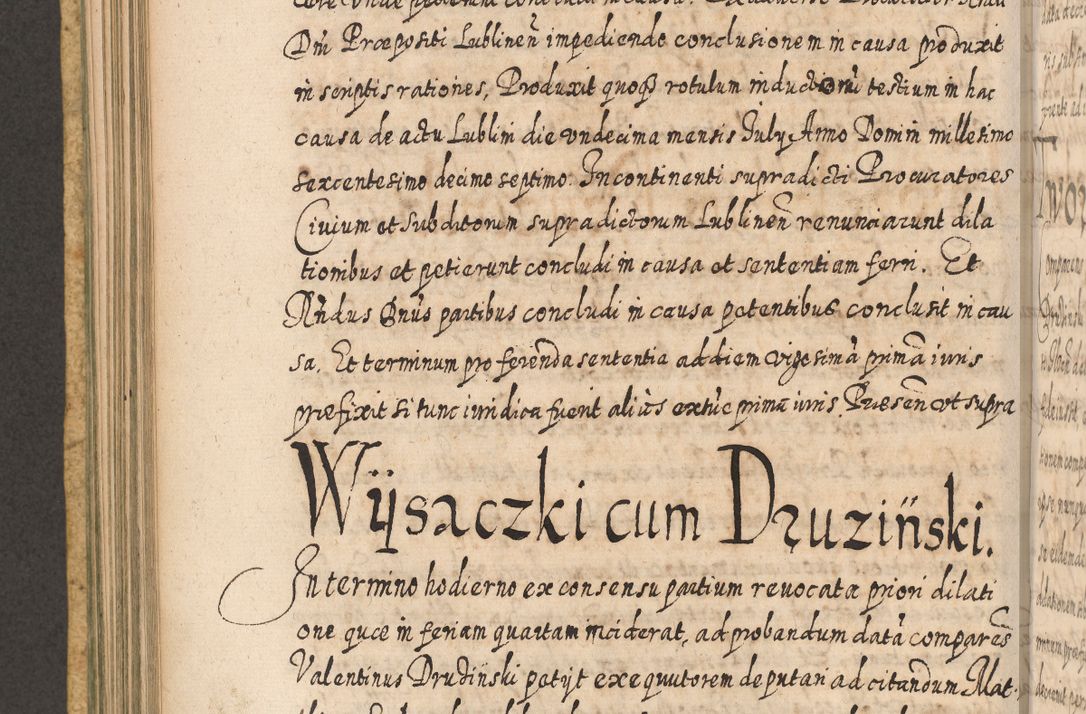 Dni Præpositi Lublinen̄ impediendo conclusionem in causa produxit
in scriptis rationes, Produxit quoq̃ rotulum inductorũ testium in hac
causa de actu Lublini die vndecima mensis July Anno Domini millesimo
sexcentesimo decimo septimo. Incontinenti supradicti Procuratores
Ciuium et Subditorum supradictorum Lublinen̄ renunciarunt dila
tionibus et petierunt concludi in causa et sententiam ferri. Et
Rñdus Dnūs partibus concludi in causa petentibus conclusit in cau
sa. Et terminum pro ferenda sententia ad diem vigesimā primā iuris
præfixit si tunc iuridica fuerit aliàs extūc primā iuris Præsen̄ vt supra
Wÿsaczki cum Druziński.
In termino hodierno ex consensu partium reuocata priori dilati
one quæ in feriam quartam inciderat, ad probandum datā comparēs
Valentinus Druziński petijt exequutorem deputari ad citandum Mat